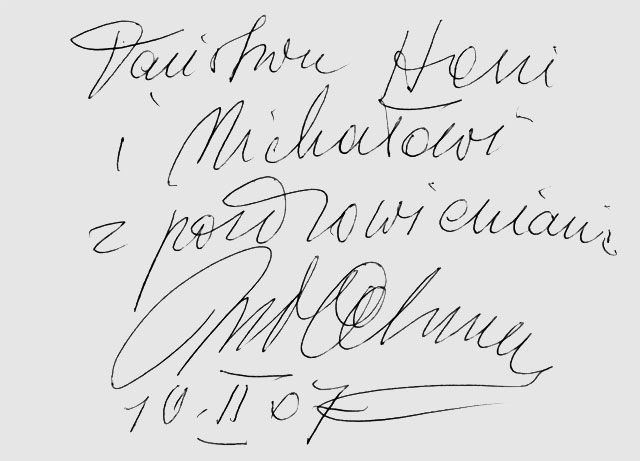 Państwu Hani
i Michałowi
z pozdrowieniami
10.II 07